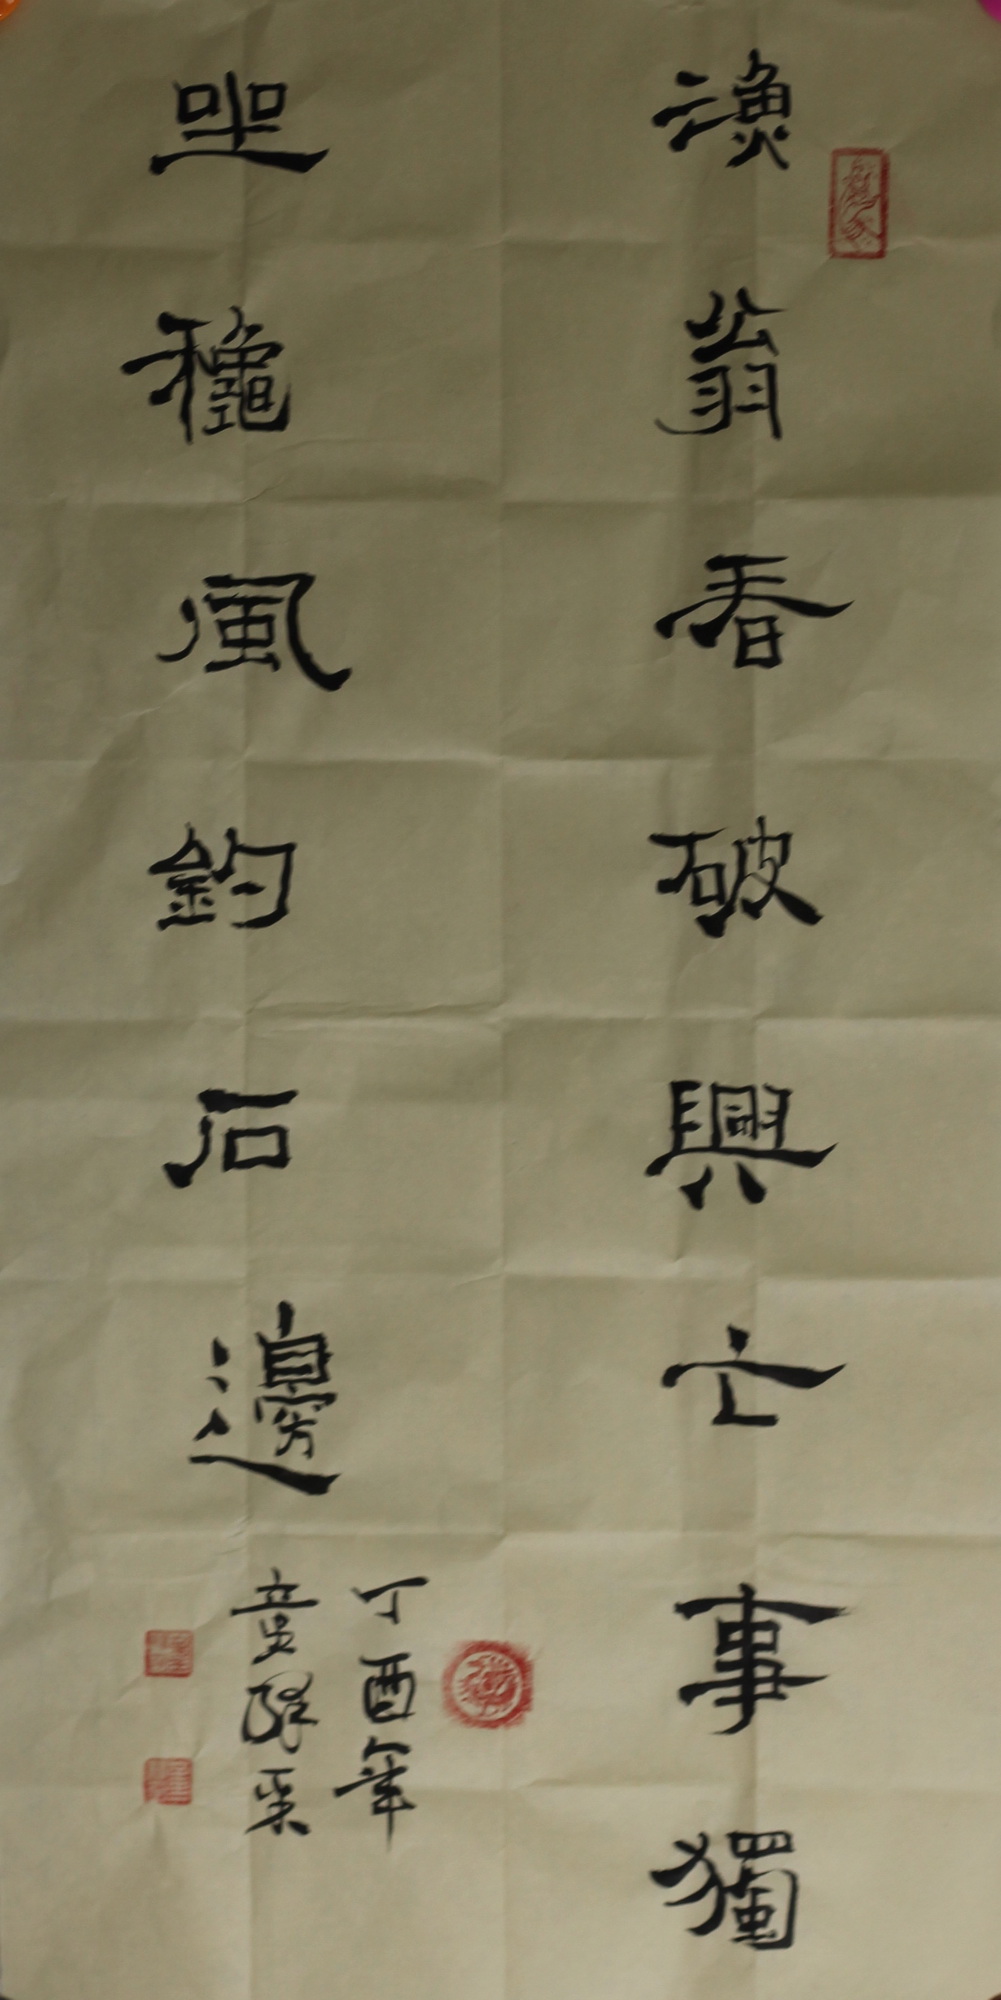 漁翁看破興亡事獨
坐龝風釣石邊
丁酉年